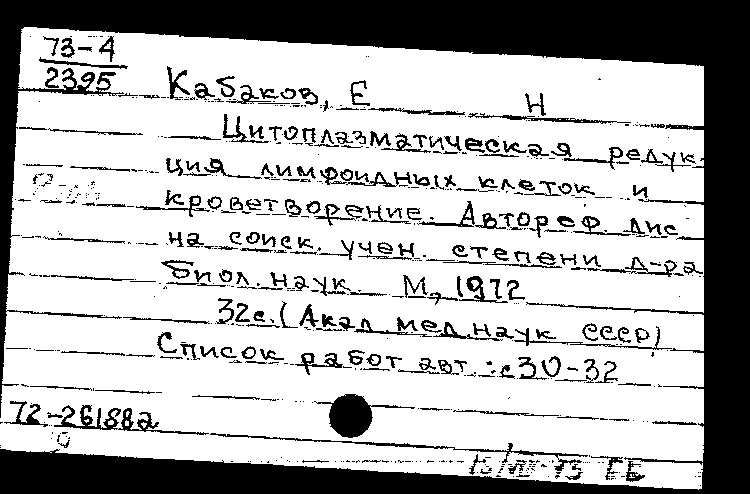 73-4
2395
Кабаков, Е Н
Цитоплазматическая редук-
ция лимфоидных клеток и
кроветворение. Автореф. дис.
на соиск. учен. степени д-ра
биол. наук. М., 1972
32с. (Акад. мед. наук СССР)
Список работ авт.: с 30-32
72-26188а
9
15/VIII-73 ЕЕ